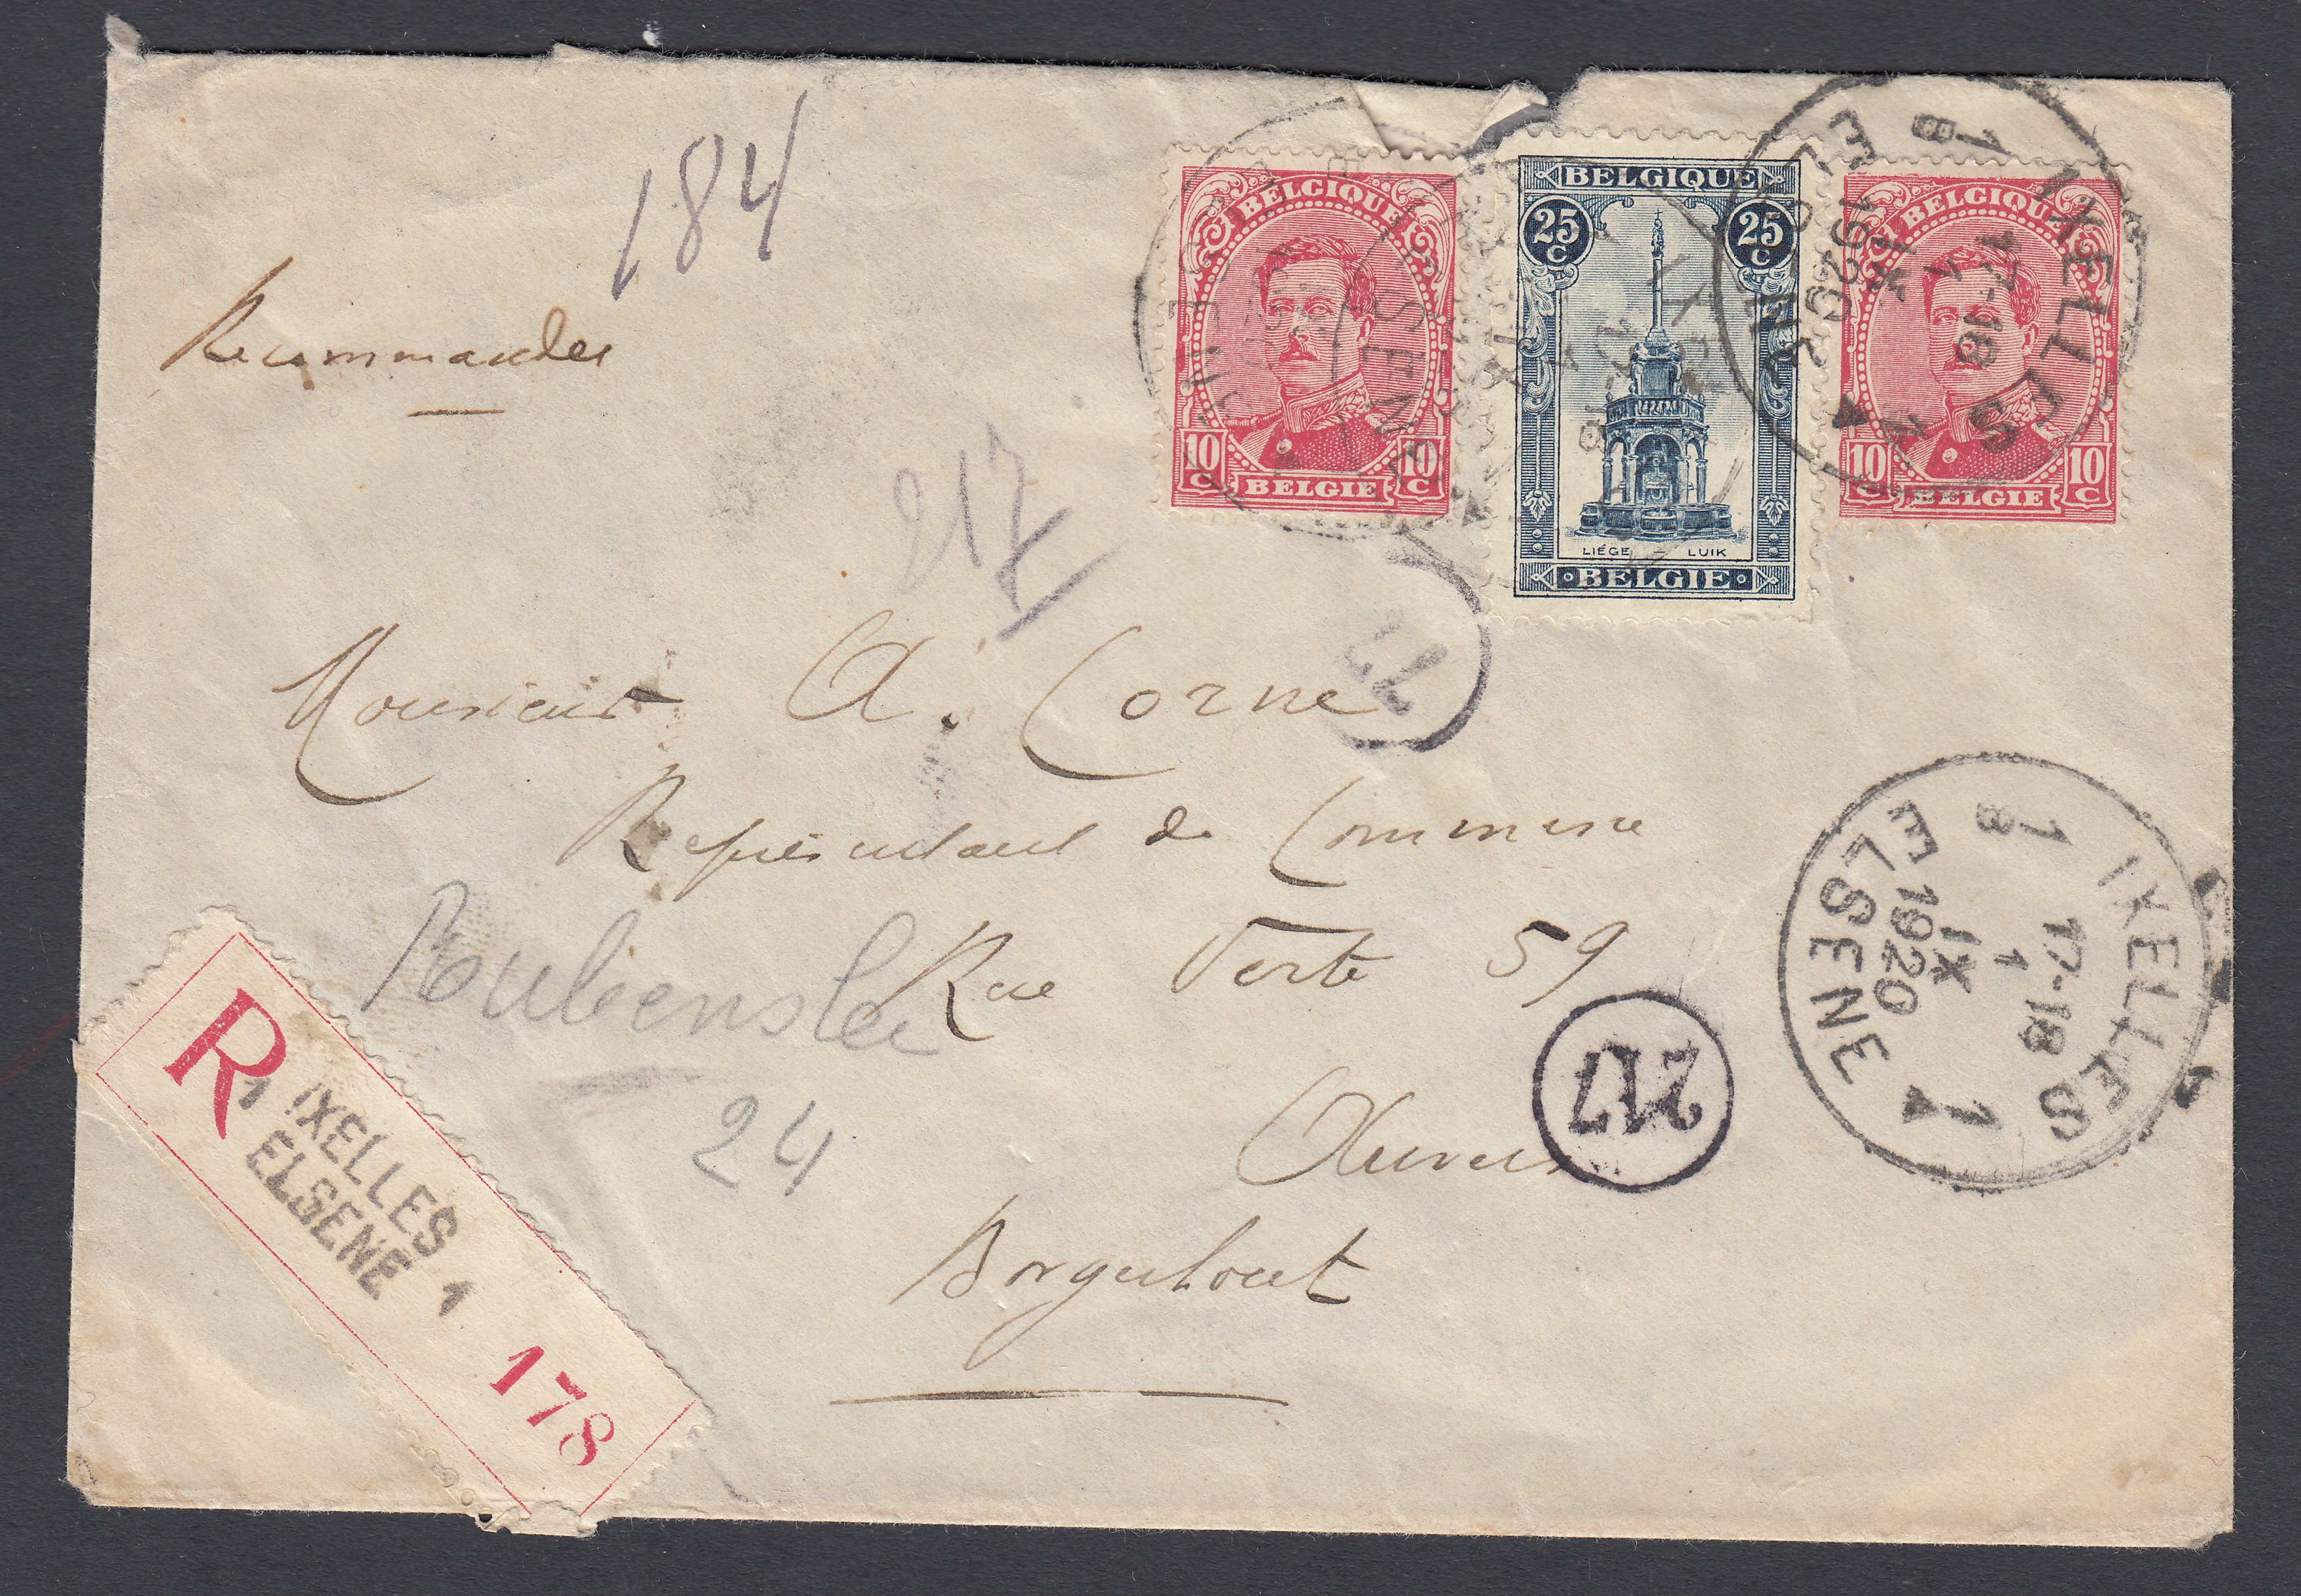 184
Recommandee
BELGIQUE
10 C 10 C
BELGIE
BELGIQUE
25 C 25 C
LIÉGE — LUIK
BELGIE
BELGIQUE
10 C 10 C
BELGIE
1 IXELLES 1
17-18
1
IX
1920
B ELSENE A
217
217
Monsieur A. Corne
Représentant de Commerce
Rue Verte 59
Anvers
Borgerhout
24
217
1 IXELLES 1
17-18
1
IX
1920
B ELSENE A
R
1 IXELLES
ELSENE 1
178